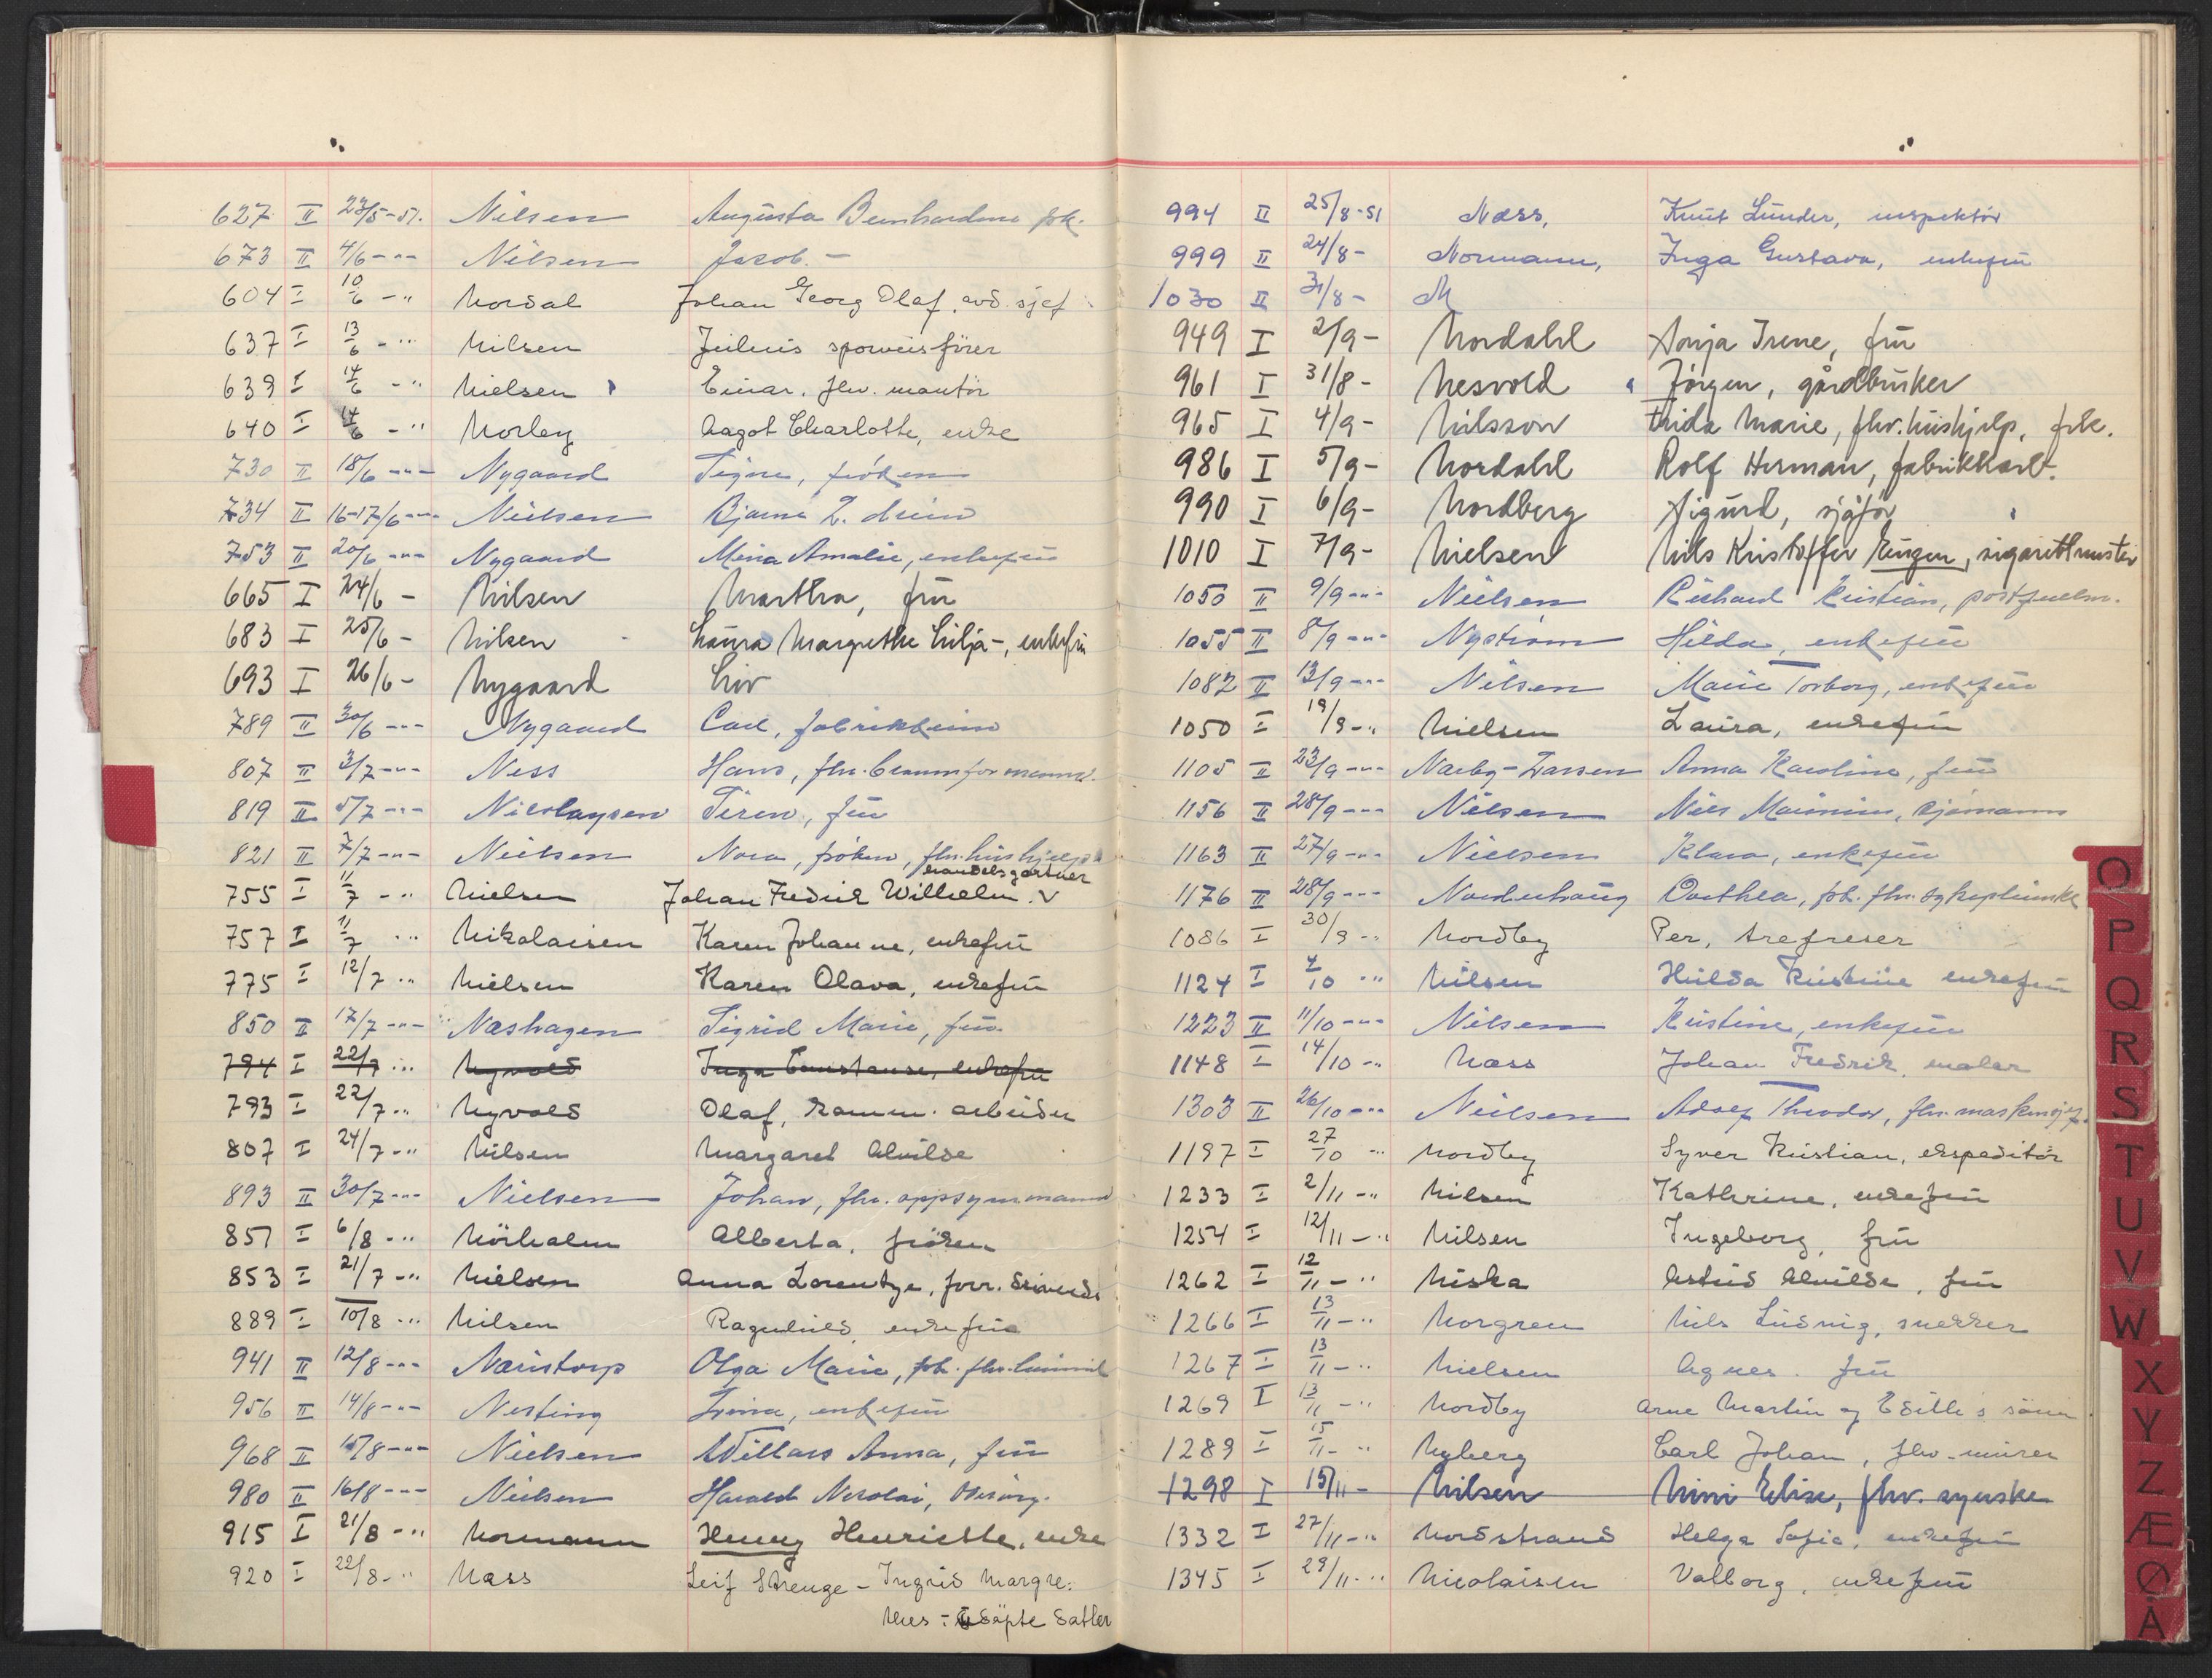 627 II 23/5-51. Nilsen Augusta Bernhardine frk.
673 II 4/6 -"- Nilsen Jacob. -
604 I 10/6 -" Nordal Johan Georg Olaf, avd. sjef
637 I 13/6 -" Nilsen Julius sporveisfører
639 I 14/6 -" Nielsen Einar, fhv. montør
640 I 14/6 -" Norley Aagot Charlotte, enke
730 II 18/6 -"- Nygaard Signe, frøken
734 II 16-17/6 -"- Nielsen Bjarne
753 II 20/6 -"- Nygaard Mina Amalie, enkefru
665 I 24/6 - Nilsen Martha, fru
683 I 25/6 - Nilsen Laura Margrethe Lilja-, enkefru
693 I 26/6 - Nygaard Liv
789 II 30/6 -"- Nygaard Carl, fabrikkeier
807 II 3/7 -"- Ness Hans, fhv. brannformann.
819 II 5/7 -"- Nicolaysen Siren, fru
821 II 7/7 -"- Nielsen Nora, frøken, fhv. hushjelp
handelsgartner
755 I 11/7 -" Nielsen Johan Fredrik Wilhelm. V
757 I 11/7 " Nikolaisen Karen Johanne, enkefru
775 I 12/7 " Nielsen Karen Olava, enkefru
850 II 17/7 -"- Næshagen Sigrid Marie, fru.
794 I 22/7 " Nyvold Inga Constanse, enkefru
793 I 22/7 " Nyvold Olaf, komm. arbeider
807 I 24/7 -" Nilsen Margaret Alvilde
893 II 30/7 -"- Nielsen Johan, fhv. oppsynsmann
851 I 6/8 -" Nörholm Alberta, frøken
853 I 21/7 -" Nielsen Anna Lorentze, forr. drivende
889 I 10/8 -" Nilsen Ragnhild, enkefru
941 II 12/8 -"- Næristorp Olga Marie, frk. fhv.
956 II 14/8 -"- Nesting enkefru
968 II 15/8 -"- Nielsen Anna, fru
980 II 16/8 -"- Nielsen Harald Nicolai,
915 I 21/8 -" Normann Henny Henriette, enke
920 I 22/8 -" Næss Leif Strenge - Ingrid Margre:
thes - döpte datter
994 II 25/8-51 Næss, Knut Lunder, inspektør
999 II 24/8 - Normann, Inga Gustava, enkefru
1030 II 31/8 - M
949 I 2/9 - Nordahl Sonja Irene, fru
961 I 31/8 - Nesvold Jörgen, gårdbruker
965 I 4/9 - Nilsson Frida Marie, fhv. hushjelp, frk.
986 I 5/9 - Nordahl Rolf Herman, fabrikkarb.
990 I 6/9 - Nordberg Sigurd, sjåfør
1010 I 7/9 - Nielsen Nils Kristoffer Ringen, sigarettmester
1050 II 9/9 -"- Nielsen Richard Kristian, postfullm.
1055 II 8/9 -"- Nystrøm Hilda, enkefru
1082 II 13/9 -"- Nilsen Marie Torborg, enkefru
1050 I 19/9 -" Nielsen Laura, enkefru
1105 II 23/9 -"- Nærby-Larsen Anna Karoline, fru
1156 II 28/9 -"- Nilsen Nils Marinius, sjømann
1163 II 27/9 -"- Nielsen Klara, enkefru
1176 II 28/9 -"- Norderhaug Dorthea, frk. fhv. sykepleierske
1086 I 30/9 -" Nordby Per, trefreser
1124 I 4/10 " Nilsen Hulda Kristine enkefru
1223 II 11/10 -"- Nilsen Kristine, enkefru
1148 I 14/10 -" Næss Johan Fredrik, maler
1303 II 26/10 -"- Nielsen Adolf Theodor, fhv. maskinsjef.
1197 I 27/10 " Nordby Syver Kristian, ekspeditør
1233 I 2/11 -" Nilsen Kathrine, enkefru
1254 I 12/11 -" Nilsen Ingeborg, fru
1262 I 12/11 -" Niska Astrid Alvilde, fru
1266 I 13/11 -" Norgren Nils Ludvig, snekker
1267 I 13/11 -" Nielsen Agnes. fru
1269 I 13/11 -" Nordby Arne Martin og Edith's sønn
1289 I 15/11 -" Nyberg Carl Johan, fhv. murer
1298 I 15/11 - Nilsen Mimi Elise, fhv. syerske
1332 I 27/11 -" Nordstrand Helga Sofie, enkefru
1345 I 29/11 " Nicolaisen Valborg, enkefru
O
P
Q
R
S
T
U
V
W
X
Y
Z
Æ
Ø
Å